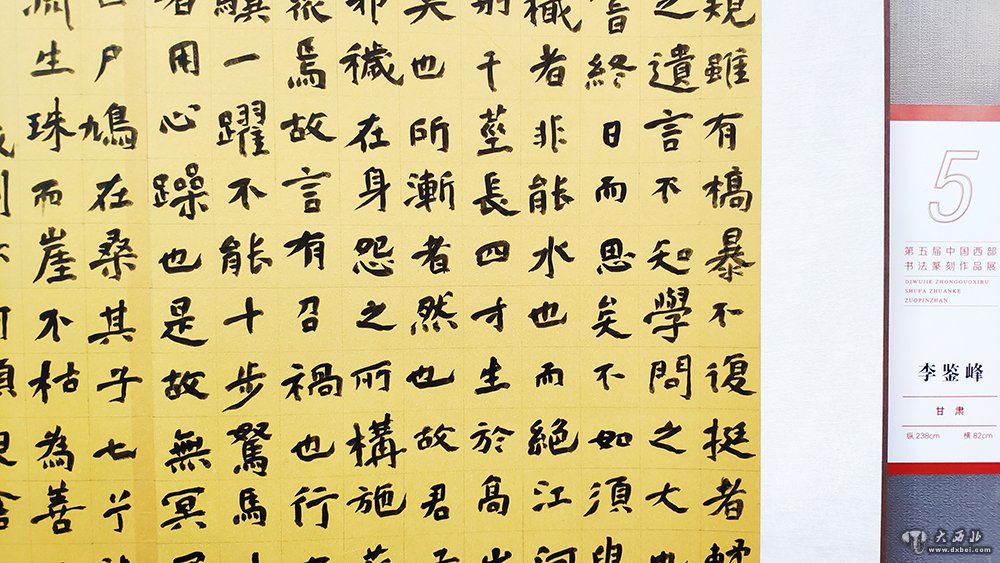 規雖有槁暴不復挺者輮
之遺言不知學問之大也
嘗終日而思矣不如須臾
檝者非能水也而絕江河
射干莖長四寸生於高山
美也所漸者然也故君子
邪穢在身怨之所構施薪
聚焉故言有召禍也行有
驥一躍不能十步駑馬十
者用心躁也是故無冥冥
曰尸鳩在桑其子七兮
淵生珠而崖不枯為善
則不可須臾舍
5
第五届中国西部
书法篆刻作品展
DIWUJIE ZHONGGUOXIBU
SHUFA ZHUANKE
ZUOPINZHAN
李鉴峰
甘 肃
纵 238cm 横 82cm
大西北
www.dxbei.com